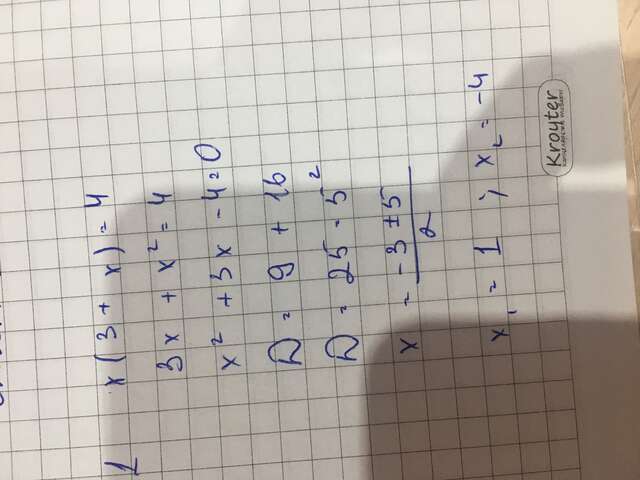 1 x(3 + x) = 4
3x + x² = 4
x² + 3x - 4 = 0
D = 9 + 16
D = 25 = 5²
x = (-3 ± 5)/2
x₁ = 1 ; x₂ = -4
Kroyter